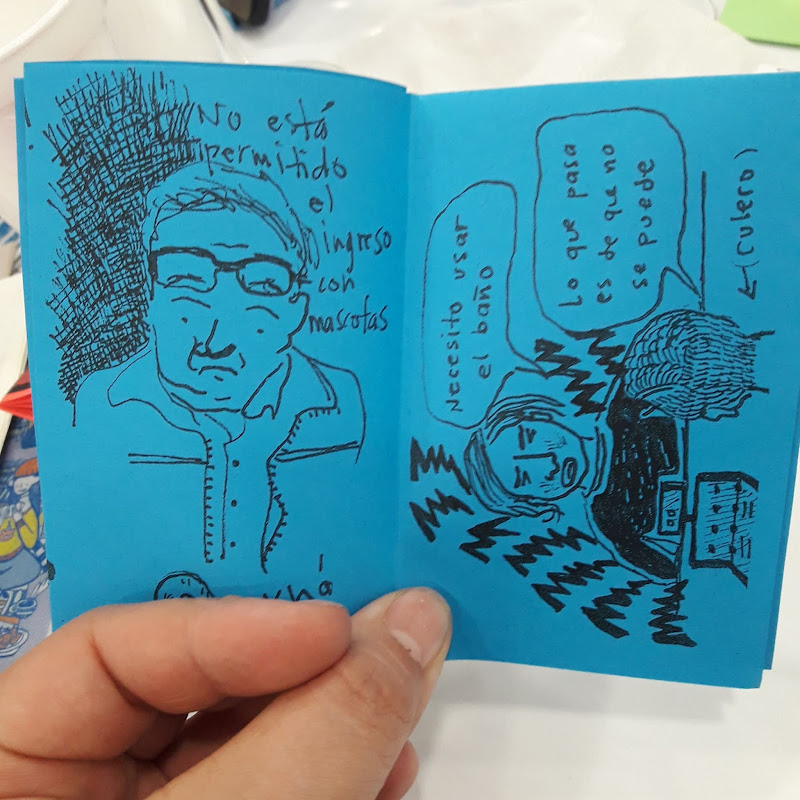 No está
permitido
el
ingreso
con
mascotas
Necesito usar
el baño
Lo que pasa
es de que no
se puede
(rulero)